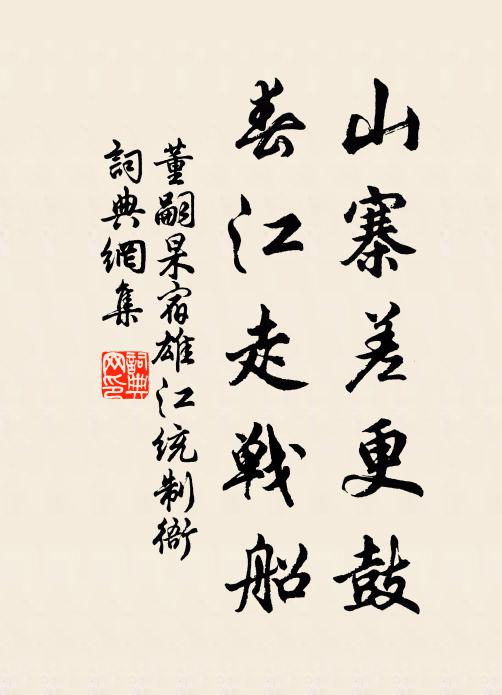 山寨差更鼓
春江走戰船
董嗣杲宿雄江統制衙
詞典網集
詞典網印